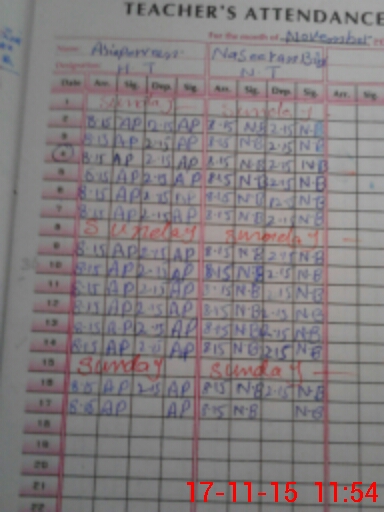 TEACHER'S ATTENDANCE
For the month of November
Name
Designation H T N T
Date Arr. Sig. Dep. Sig. Arr. Sig. Dep. Sig. Arr. Sig.
1 Sunday Sunday
2 8-15 AP 2-15 AP 8-15 N-B 2-15 N-B
3 8-15 AP 2-15 AP 8-15 N-B 2-15 N-B
4 8-15 AP 2-15 AP 8-15 N-B 2-15 N-B
5 8-15 AP 2-15 AP 8-15 N-B 2-15 N-B
6 8-15 AP 8-15 N-B N-B
7 8-15 AP 2-15 AP 8-15 N-B 2-15 N-B
8 Sunday Sunday
9 8-15 AP 2-15 AP 8-15 N-B 2-15 N-B
10 8-15 AP 2-15 AP 8-15 N-B 2-15 N-B
11 8-15 AP 2-15 AP 8-15 N-B N-B
12 8-15 AP 2-15 AP 8-15 N-B 2-15 N-B
13 8-15 AP 2-15 AP 8-15 N-B 2-15 N-B
14 8-15 AP 2-15 AP 8-15 N-B 2-15 N-B
15 Sunday Sunday
16 8-15 AP 2-15 AP 8-15 N-B 2-15 N-B
17 8-15 AP AP 8-15 N-B N-B
18
19
20
21
22
17-11-15 11:54